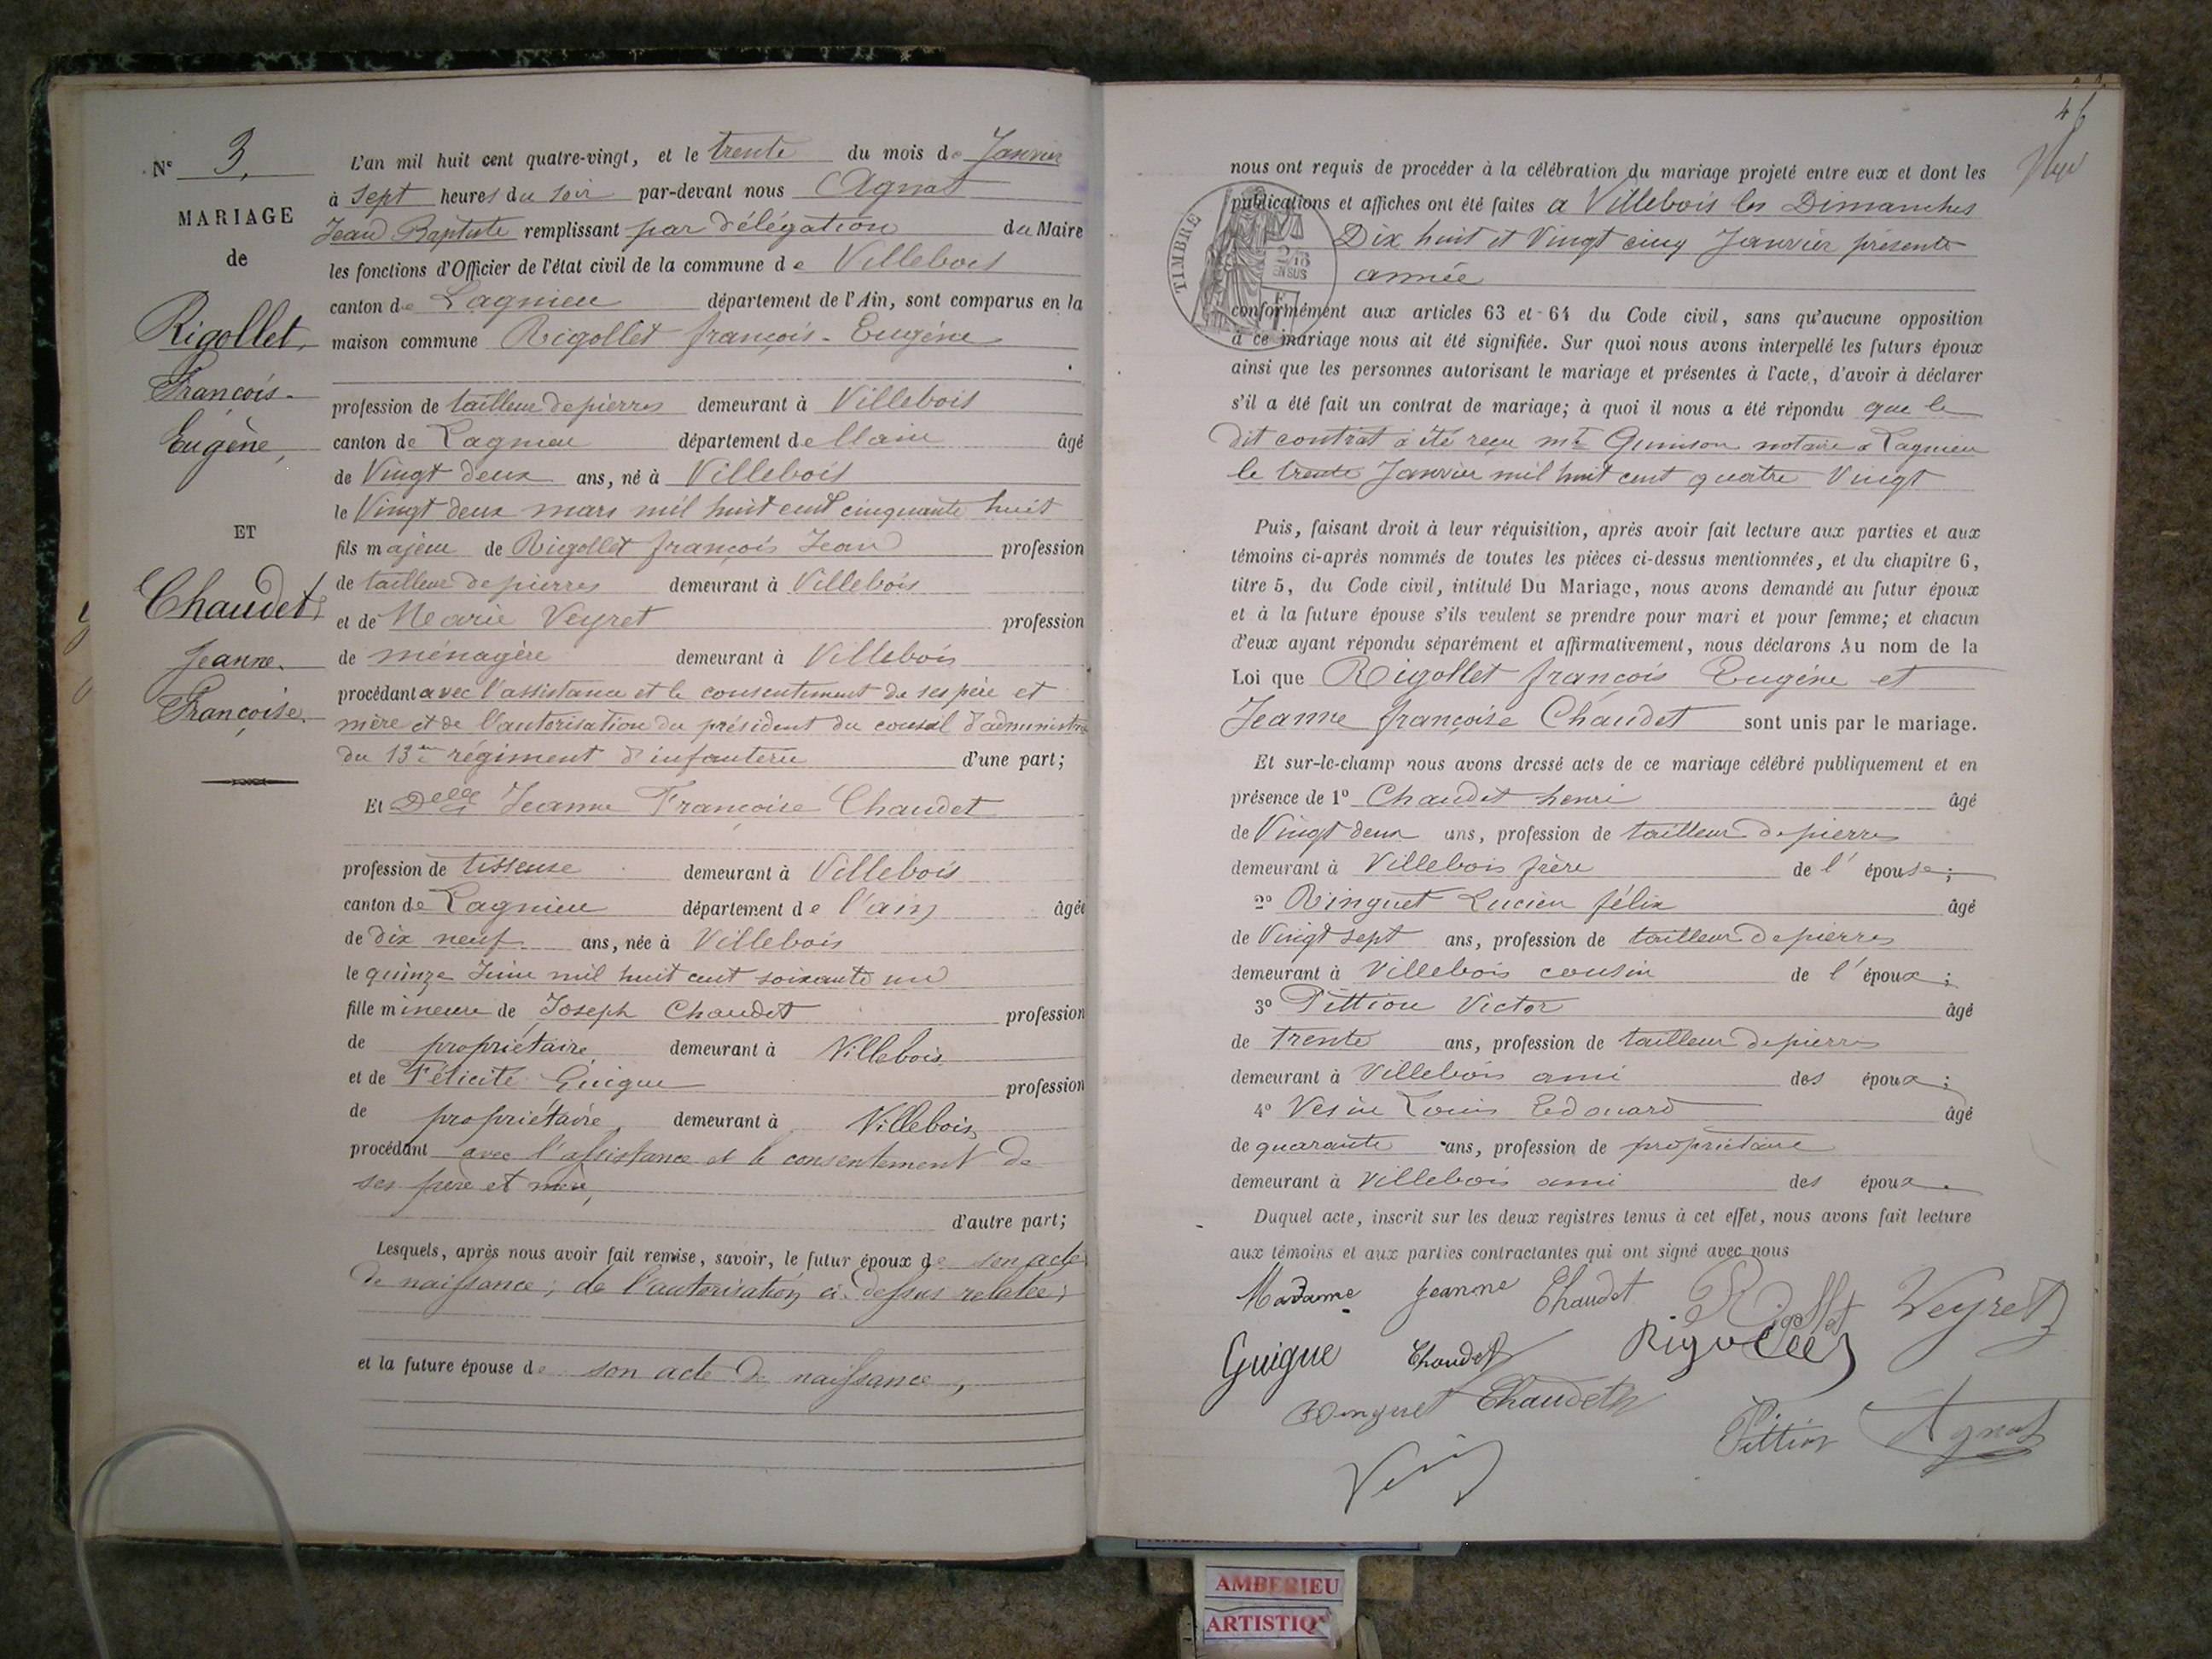 N° 3,
MARIAGE
de
Rigollet,
François-
Eugène,
ET
Chaudet,
Jeanne.
Françoise.
L'an mil huit cent quatre-vingt, et le trente du mois de Janvier
à sept heures du soir par-devant nous Agnat
Jean Baptiste remplissant par délégation du Maire
les fonctions d'Officier de l'état civil de la commune de Villebois
canton de Lagnieu département de l'Ain, sont comparus en la
maison commune Rigollet françois-Eugéne
profession de tailleur de pierres demeurant à Villebois
canton de Lagnieu département de llain âgé
de Vingt deux ans, né à Villebois
le Vingt deux mars mil huit cent cinquante huit
fils majeur de Rigollet françois Jean profession
de tailleur de pierres demeurant à Villebois
et de Marie Veyret profession
de ménagère demeurant à Villebois
procédant avec l'assistance et le consentement de ses père et
mère et de l'autorisation du président du conseil d'administra
du 13me régiment d'infanterie d'une part;
Et Delle Jeanne Françoise Chaudet
profession de tisseuse demeurant à Villebois
canton de Lagnieu département de l'ain âgée
de dix neuf ans, née à Villebois
le quinze Juin mil huit cent soixante un
fille mineure de Joseph Chaudet profession
de propriétaire demeurant à Villebois
et de Félicité Guigue profession
de propriétaire, demeurant à Villebois,
procédant avec l'assistance et le consentement de
ses père et mère,
d'autre part;
Lesquels, après nous avoir fait remise, savoir, le futur époux de son acte
de naissance; de l'autorisation ci-dessus relatée;
et la future épouse de son acte de naissance,
46
nous ont requis de procéder à la célébration du mariage projeté entre eux et dont les
publications et affiches ont été faites a Villebois les Dimanches
Dix huit et Vingt cinq Janvier présente
année
TIMBRE
conformément aux articles 63 et 64 du Code civil, sans qu'aucune opposition
à ce mariage nous ait été signifiée. Sur quoi nous avons interpellé les futurs époux
ainsi que les personnes autorisant le mariage et présentes à l'acte, d'avoir à déclarer
s'il a été fait un contrat de mariage; à quoi il nous a été répondu que le
dit contrat a été reçu me notaire a Lagnieu
le trente Janvier mil huit cent quatre Vingt
Puis, faisant droit à leur réquisition, après avoir fait lecture aux parties et aux
témoins ci-après nommés de toutes les pièces ci-dessus mentionnées, et du chapitre 6,
titre 5, du Code civil, intitulé Du Mariage, nous avons demandé au futur époux
et à la future épouse s'ils veulent se prendre pour mari et pour femme; et chacun
d'eux ayant répondu séparément et affirmativement, nous déclarons Au nom de la
Loi que Rigollet françois Eugéne et
Jeanne françoise Chaudet sont unis par le mariage.
Et sur-le-champ nous avons dressé acts de ce mariage célébré publiquement et en
présence de 1° Chaudet henri âgé
de Vingt deux ans, profession de tailleur de pierres
demeurant à Villebois frère de l' épouse;
2° Ringuet Lucien félix âgé
de Vingt sept ans, profession de tailleur de pierres
demeurant à Villebois cousin de l' époux;
3° Pittion Victor âgé
de trente ans, profession de tailleur de pierres
demeurant à Villebois ami des époux;
4° Vesin Louis Edouard âgé
de quarante ans, profession de propriétaire
demeurant à Villebois ami des époux.
Duquel acte, inscrit sur les deux registres tenus à cet effet, nous avons fait lecture
aux témoins et aux parties contractantes qui ont signé avec nous
Madame Jeanne Chaudet Rigollet Veyret
Guigue Chaudet Rigollet
Ringuet Chaudet Pittion Agnat
Vesin
AMBERIEU
ARTISTIQ